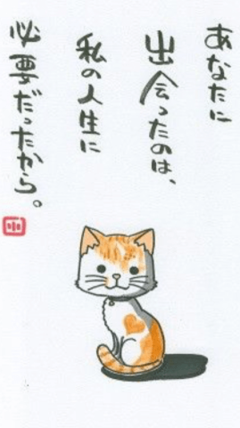 あなたに
出会ったのは、
私の人生に
必要だったから。